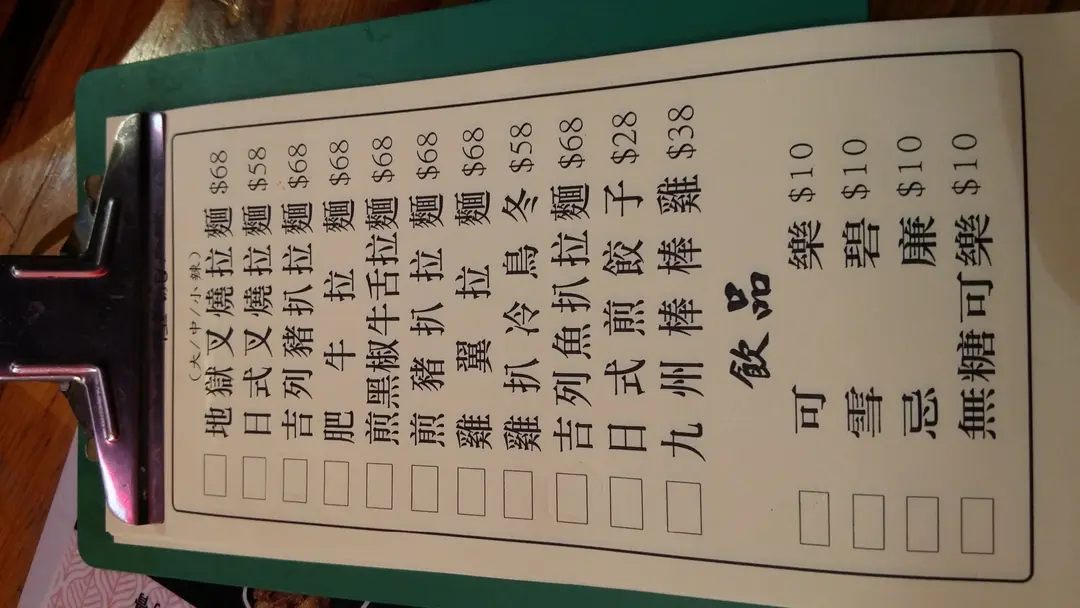 (大/中/小辣)
地獄叉燒拉麵 $68
日式叉燒拉麵 $58
吉列豬扒拉麵 $68
肥牛拉麵 $68
煎黑椒牛舌拉麵 $68
煎豬扒拉麵 $68
雞翼拉麵 $68
雞扒冷烏冬 $58
吉列魚扒拉麵 $68
日式煎餃子 $28
九州棒棒雞 $38
飲品
可樂 $10
雪碧 $10
忌廉 $10
無糖可樂 $10